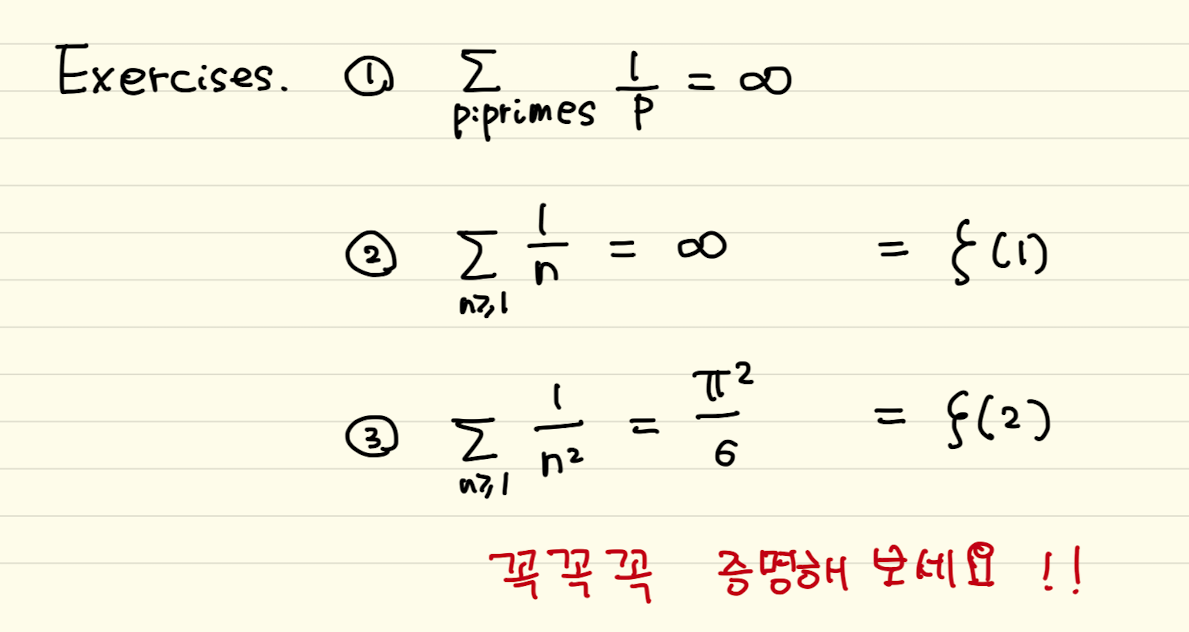 Exercises. ① ∑_{p:primes} 1/p = ∞
② ∑_{n≥1} 1/n = ∞ = ξ(1)
③ ∑_{n≥1} 1/n² = π²/6 = ξ(2)
꼭꼭꼭 증명해 보세요 !!